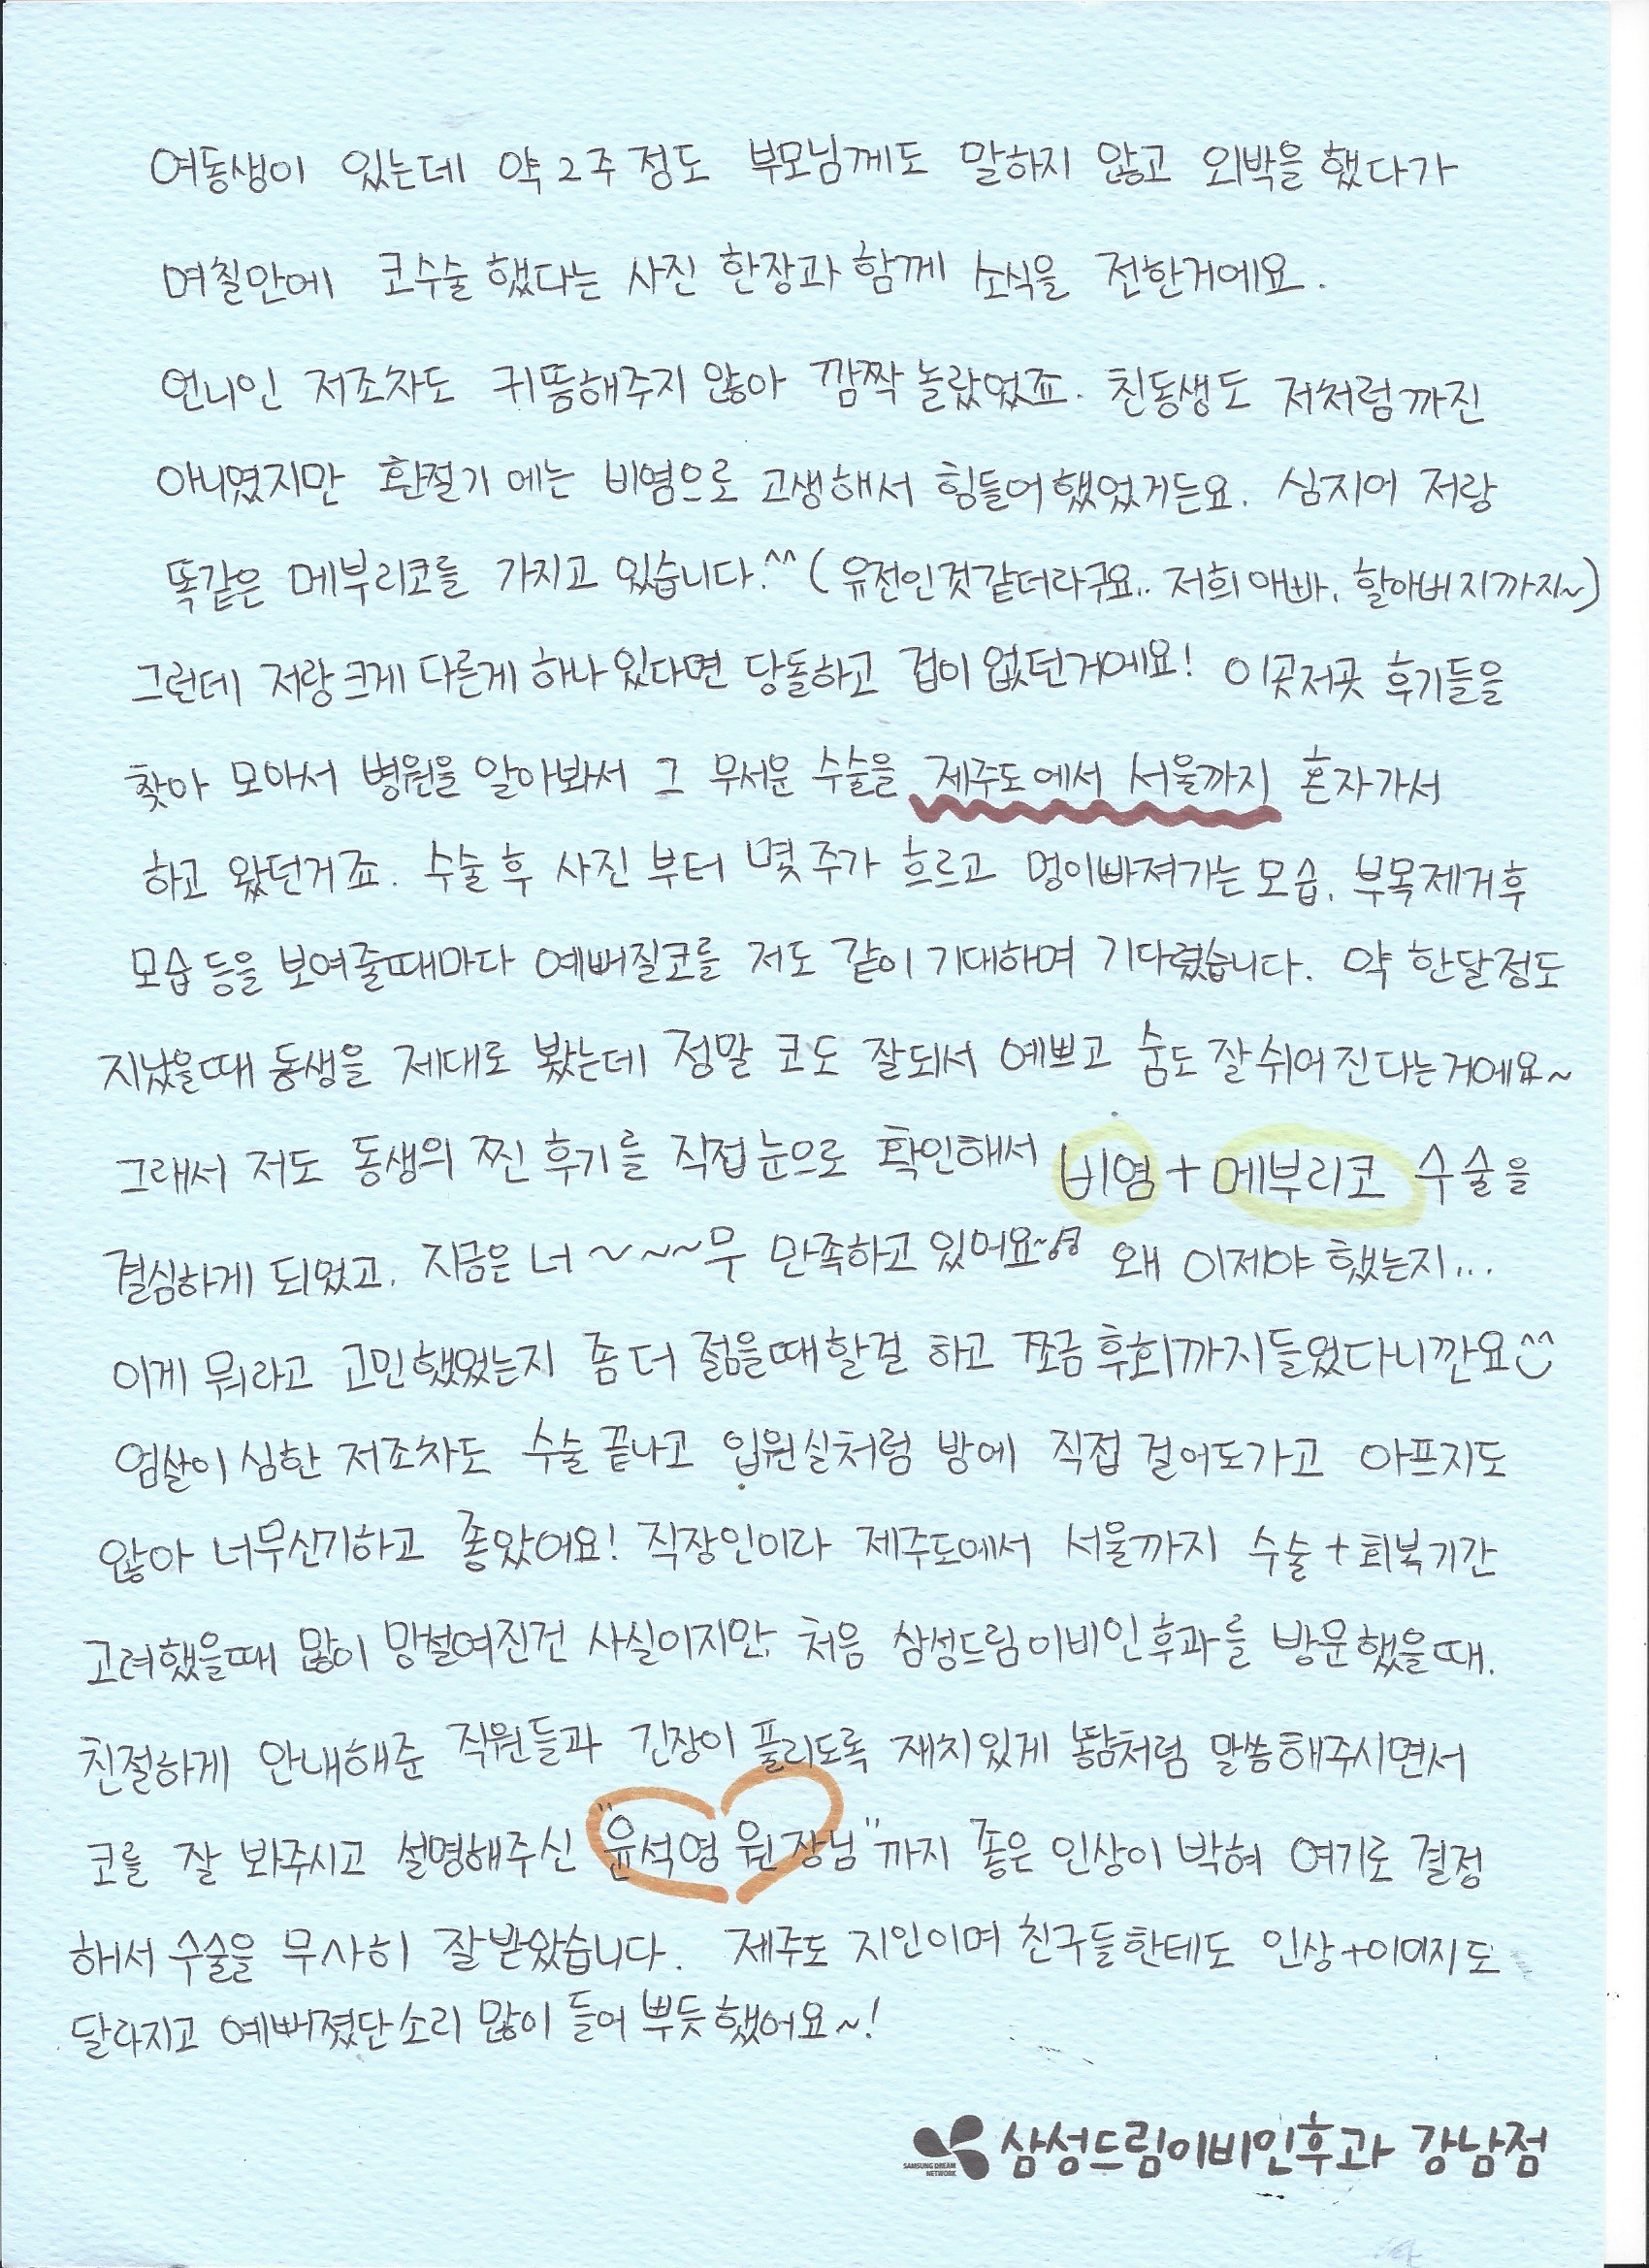 여동생이 있는데 약 2주 정도 부모님께도 말하지 않고 외박을 했다가
며칠안에 코수술 했다는 사진 한장과 함께 소식을 전한거에요.
언니인 저조차도 귀띔해주지 않아 깜짝 놀랐었죠. 친동생도 저처럼까진
아니였지만 환절기에는 비염으로 고생해서 힘들어했었거든요. 심지어 저랑
똑같은 메부리코를 가지고 있습니다.^^ (유전인것같더라구요.. 저희아빠, 할아버지까지~)
그런데 저랑 크게 다른게 하나 있다면 당돌하고 겁이 없던거에요! 이곳저곳 후기들을
찾아 모아서 병원을 알아봐서 그 무서운 수술을 제주도에서 서울까지 혼자가서
하고 왔던거죠. 수술 후 사진 부터 몇 주가 흐르고 멍이빠져가는 모습, 부목제거후
모습 등을 보여줄때마다 예뻐질코를 저도 같이 기대하며 기다렸습니다. 약 한달정도
지났을때 동생을 제대로 봤는데 정말 코도 잘되서 예쁘고 숨도 잘 쉬어진다는거에요~
그래서 저도 동생의 찐 후기를 직접 눈으로 확인해서 비염+메부리코 수술을
결심하게 되었고, 지금은 너~~~~무 만족하고 있어요~ 왜 이제야 했는지...
이게 뭐라고 고민했었는지 좀 더 젊을때할걸 하고 쪼금 후회까지들었다니깐요^^
엄살이 심한 저조차도 수술 끝나고 입원실처럼 방에 직접 걸어도가고 아프지도
않아 너무신기하고 좋았어요! 직장인이라 제주도에서 서울까지 수술+회복기간
고려했을때 많이 망설여진건 사실이지만, 처음 삼성드림이비인후과를 방문했을때,
친절하게 안내해준 직원들과 긴장이 풀리도록 재치있게 농담처럼 말씀해주시면서
코를 잘 봐주시고 설명해주신 "윤석영 원장님"까지 좋은 인상이 박혀 여기로 결정
해서 수술을 무사히 잘받았습니다. 제주도 지인이며 친구들한테도 인상+이미지도
달라지고 예뻐졌단소리 많이 들어 뿌듯했어요~!
SAMSUNG DREAM NETWORK 삼성드림이비인후과 강남점